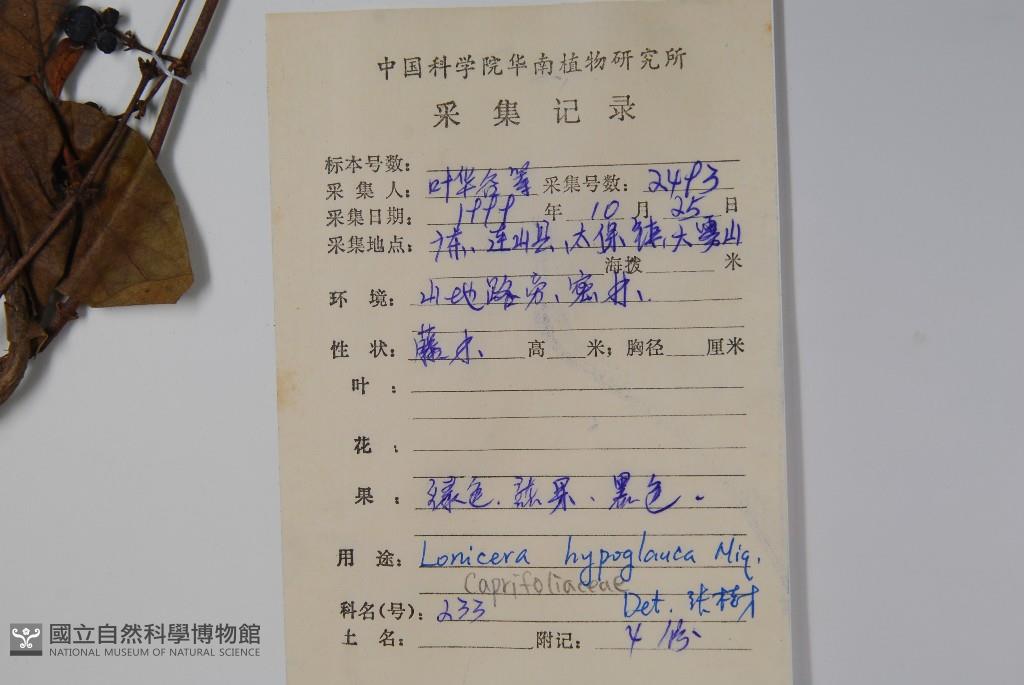 中国科学院华南植物研究所
采集记录
标本号数：
采集人：叶华谷等 采集号数：2493
采集日期：1999年10月25日
采集地点：广东、连山县、太保镇、大雾山
海拨 米
环境：山地路旁、密林、
性状：藤本、 高 米；胸径 厘米
叶：
花：
果：绿色、熟果、黑色.
用途：Lonicera hypoglauca Miq.
Caprifoliaceae
科名(号)：233 Det. 张树才
土名： 附记：4份
國立自然科學博物館
NATIONAL MUSEUM OF NATURAL SCIENCE